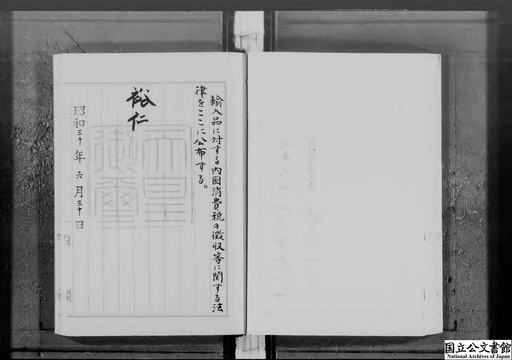 輸入品に対する内国消費税の徴収等に関する法
律をここに公布する。
裕仁
天皇
御璽
昭和三十年六月三十日
国立公文書館
National Archives of Japan